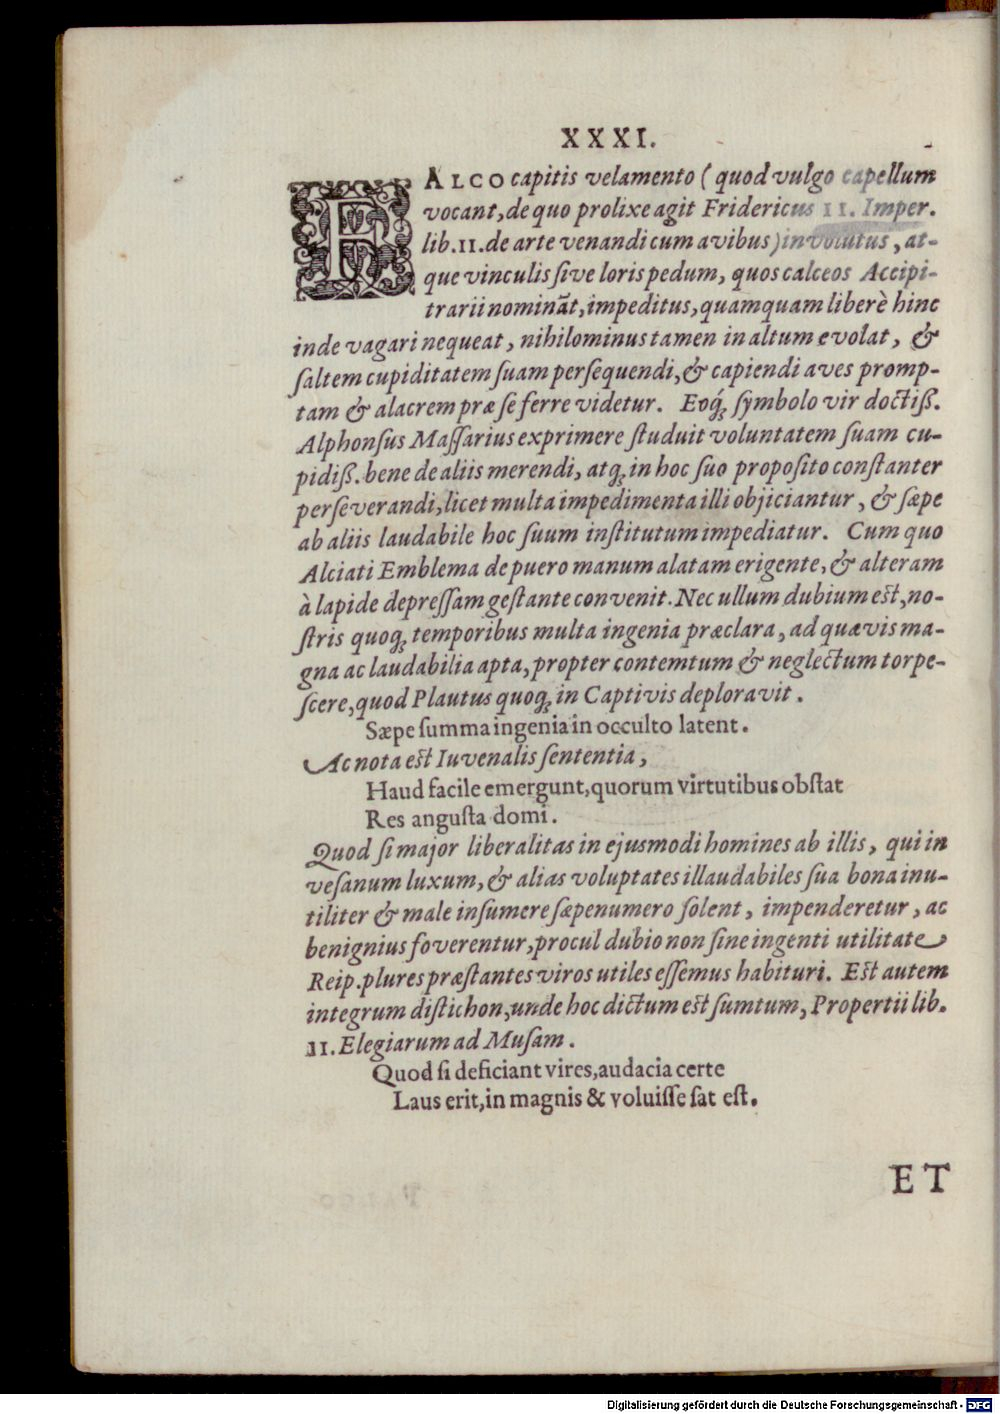 XXXI.
FALCO capitis velamento (quod vulgo capellum
vocant, de quo prolixe agit Fridericus II. Imper.
lib. II. de arte venandi cum avibus) involutus, at-
que vinculis sive loris pedum, quos calceos Accipi-
trarii nominãt, impeditus, quamquam liberè hinc
inde vagari nequeat, nihilominus tamen in altum evolat, &
saltem cupiditatem suam persequendi, & capiendi aves promp-
tam & alacrem præ se ferre videtur. Eoq́; symbolo vir doctiß.
Alphonsus Massarius exprimere studuit voluntatem suam cu-
pidiß. bene de aliis merendi, atq; in hoc suo proposito constanter
perseverandi, licet multa impedimenta illi objiciantur, & sæpe
ab aliis laudabile hoc suum institutum impediatur. Cum quo
Alciati Emblema de puero manum alatam erigente, & alteram
à lapide depressam gestante convenit. Nec ullum dubium est, no-
stris quoq; temporibus multa ingenia præclara, ad quævis ma-
gna ac laudabilia apta, propter contemtum & neglectum torpe-
scere, quod Plautus quoq; in Captivis deploravit.
Sæpe summa ingenia in occulto latent.
Ac nota est Iuvenalis sententia,
Haud facile emergunt, quorum virtutibus obstat
Res angusta domi.
Quod si major liberalitas in ejusmodi homines ab illis, qui in
vesanum luxum, & alias voluptates illaudabiles sua bona inu-
tiliter & male insumere sæpenumero solent, impenderetur, ac
benignius foverentur, procul dubio non sine ingenti utilitate
Reip. plures præstantes viros utiles essemus habituri. Est autem
integrum distichon, unde hoc dictum est sumtum, Propertii lib.
II. Elegiarum ad Musam.
Quod si deficiant vires, audacia certe
Laus erit, in magnis & voluisse sat est.
ET
Digitalisierung gefördert durch die Deutsche Forschungsgemeinschaft - DFG